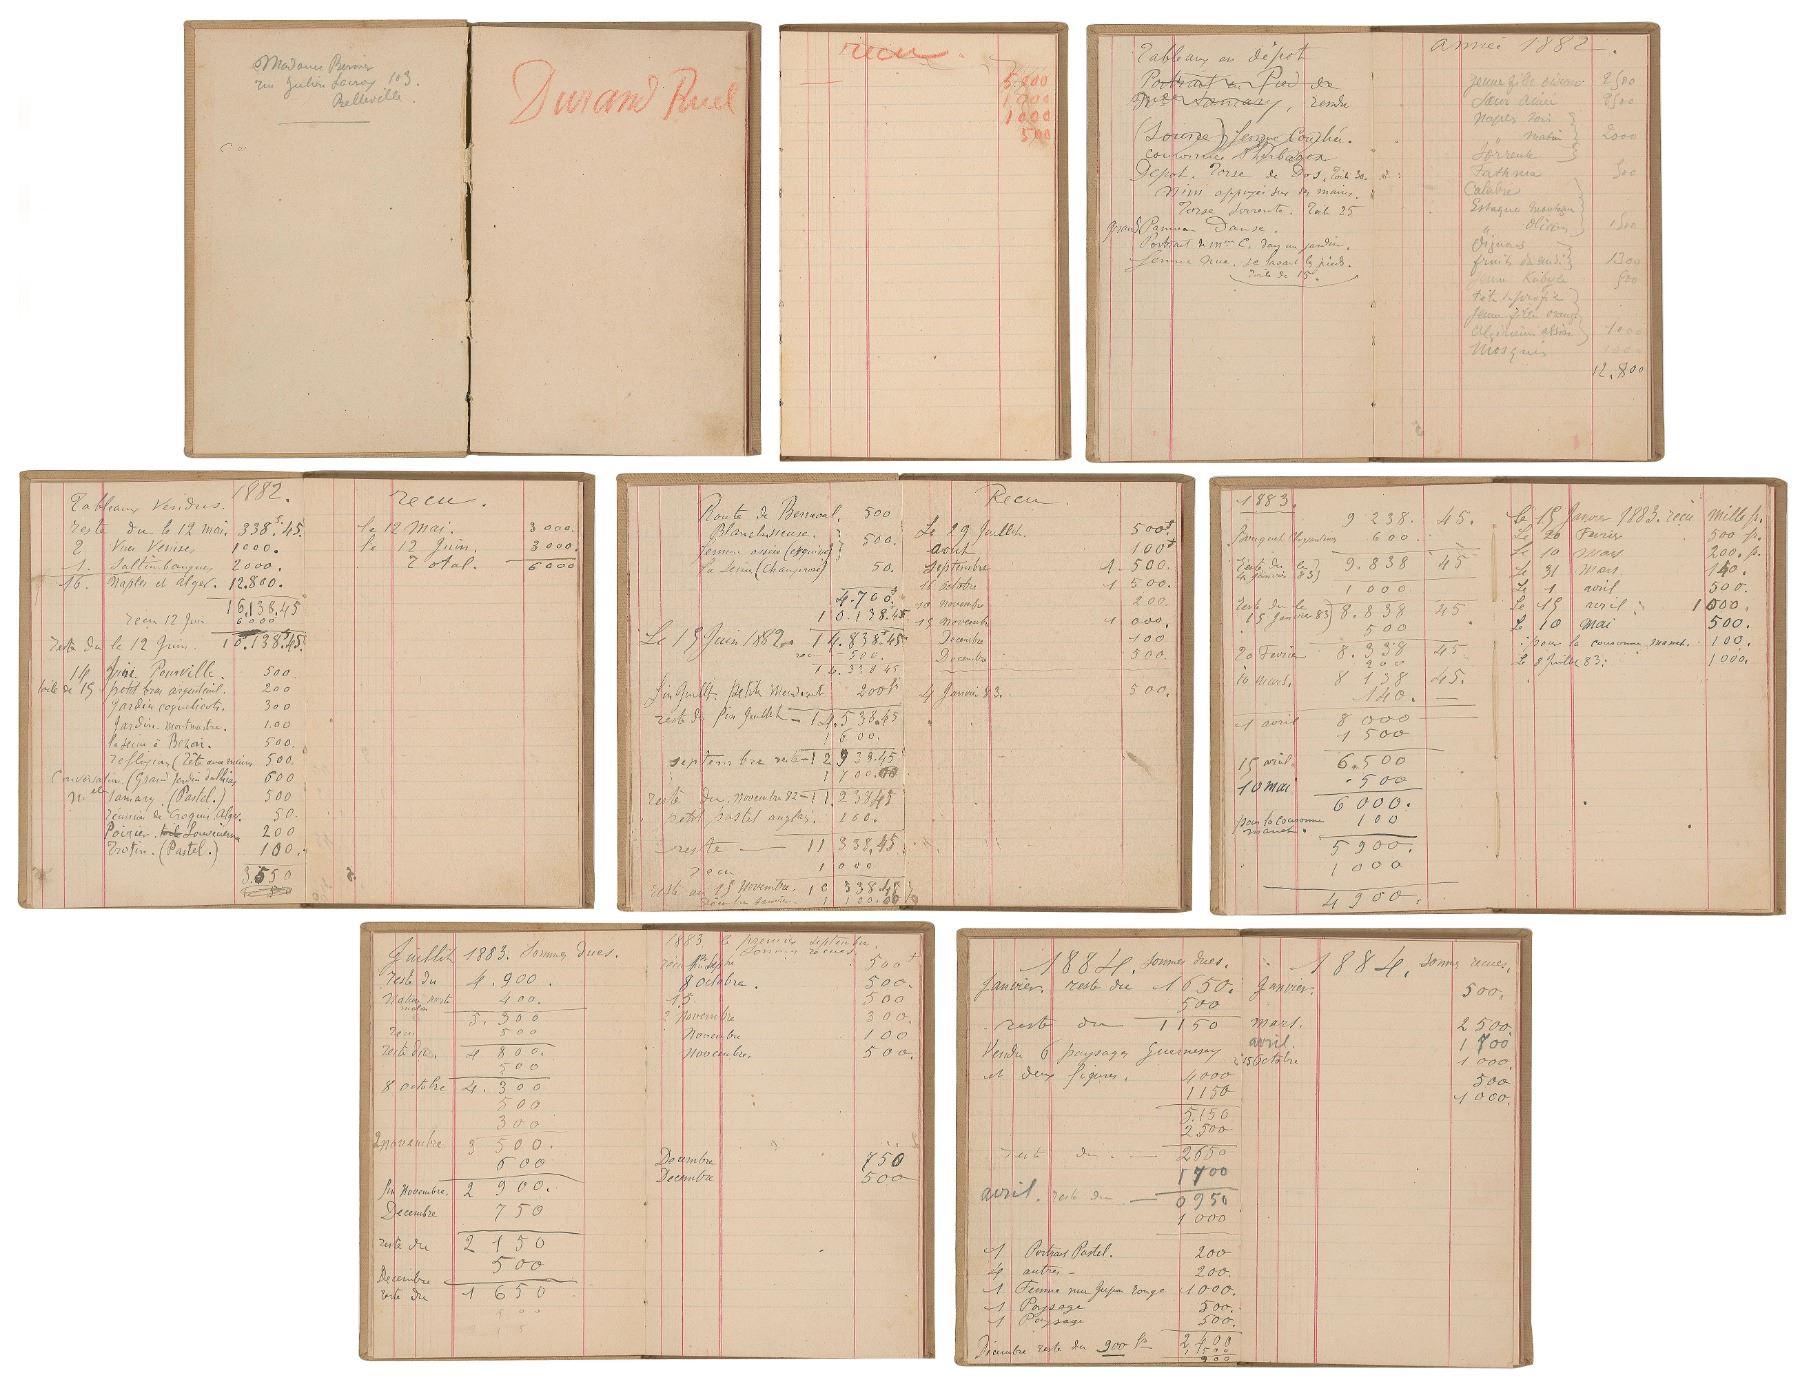 Madame Bernier
rue Julien Lacroix 103
Belleville.
Durand Ruel
recu.
5,000
1000
1000
500
Tableaux en dépot
Portrait en Pied de
Samary, rendu
(Source) femme Couchée.
couronnée d'herbages
Depot. Torse de Dos. toile 30.
Nini appuyée sur ses mains.
Torse Sorrente. toile 25
grand Panneau Danse.
Portrait de Mme C. dans un jardin.
femme nue. se lavant les pieds.
toile de 15.
année 1882.
jeune fille 2500
Sœur ainée 2500
Naples soir
" matin 2000
Sorrente
Fathma 500
Calabre
Estaque montagne
" oliviers 1500
Oignons
fruits du midi 1300
jeune Kabyle 500
tête de profil
jeune fille orange
Algérienne assise 1000
Mosquée 1000
12.800
1882.
Tableaux Vendus.
reste du le 12 mai. 338f.45
2 Vues Venise 1000.
1. Saltimbanques 2000.
16. Naples et Alger. 12.800.
16.138.45
recu 12 Juin 6000
reste du le 12 Juin. 10.138f.45
14 Juin Pourville. 500.
toile de 15 petit bras argenteuil. 200
Jardin coquelicots. 300
Jardin. montmartre. 100
la Seine à Bezon. 500.
500
Conversation. (Grand Jardin dalhias 600
Melle Samary. (Pastel.) 500
reunion de Croquis Alger. 50.
Poirier. Louveciennes 200
Trotin. (Pastel.) 100.
3.550
recu.
le 12 Mai. 3000.
le 12 Juin. 3000.
Total. 6000
Route de Berneval. 500
Blanchisseuse.
femme assise (esquisse) 500.
la Seine (Champrosay) 50.
4.700f
10.138.45
Le 15 Juin 1882. 14.838f.45
recu 500.
14.338.45
fin Juillet. Petite Mendiante 200f
reste du fin Juillet — 14.538.45
1600.
septembre reste — 12938.45
1700.00
reste du. novembre 82 — 11.238.45
petit pastel anglais. 100.
reste — 11338.45
recu 1000
reste au 15 Novembre. 10338.45
1100.00
Recu
Le 29 Juillet. 500f
aout 100f
Septembre 1500.
16 octobre 1500.
10 novembre 200.
15 novembre 1000.
Decembre 100
Decembre 500.
4 Janvier 83. 500.
1883.
9238. 45.
600.
9.838 45
reste du le
4 janvier 83)
1000
reste du le
15 Janvier 83) 8.838 45
500
20 Fevrier 8.338 45
200
10 mars. 8138 45.
140. —
1 avril 8000
1500
15 avril 6.500
10 mai 500
6000.
pour la couronne
manet. 100
5900.
1000
4900.
Le 15 Janvier 1883. recu mille f.
Le 20 Fevrier 500 f.
Le 10 mars 200. f.
Le 31 mars 140.
Le 1 avril 500.
Le 15 avril 1000.
Le 10 mai 500.
pour la couronne manet. 100.
Le 8 Juillet 83. 1000.
Juillet 1883. Sommes dues.
reste du 4.900.
400.
5.300
recu 500
reste du. 4800.
500
8 octobre 4.300
500
300
2 novembre 3500.
600
fin Novembre. 2900.
Decembre 750
reste du 2150
500
Decembre
reste du 1650
1883. le premier septembre.
Sommes recues.
500f
8 octobre. 500.
15 500
2 Novembre 300.
Novembre 100
Novembre. 500.
Decembre 750
Decembre 500
1884. Sommes dues.
Janvier. reste du 1650.
500
reste du 1150
Vendu 6 paysages Guernesey
et deux figures. 4000
1150
5.150
2500
reste du — 2650
1700
avril. reste du — 0950
1000
1 Portrait Pastel. 200
4 autres — 200.
1 Femme nue Jupon rouge 1000.
1 Paysage 500.
1 Paysage 500.
2400
1500
Décembre reste du 900 f. 900
1884. Sommes recues.
Janvier. 500.
mars. 2500.
avril. 1700
15 Octobre 1000.
500
1000.